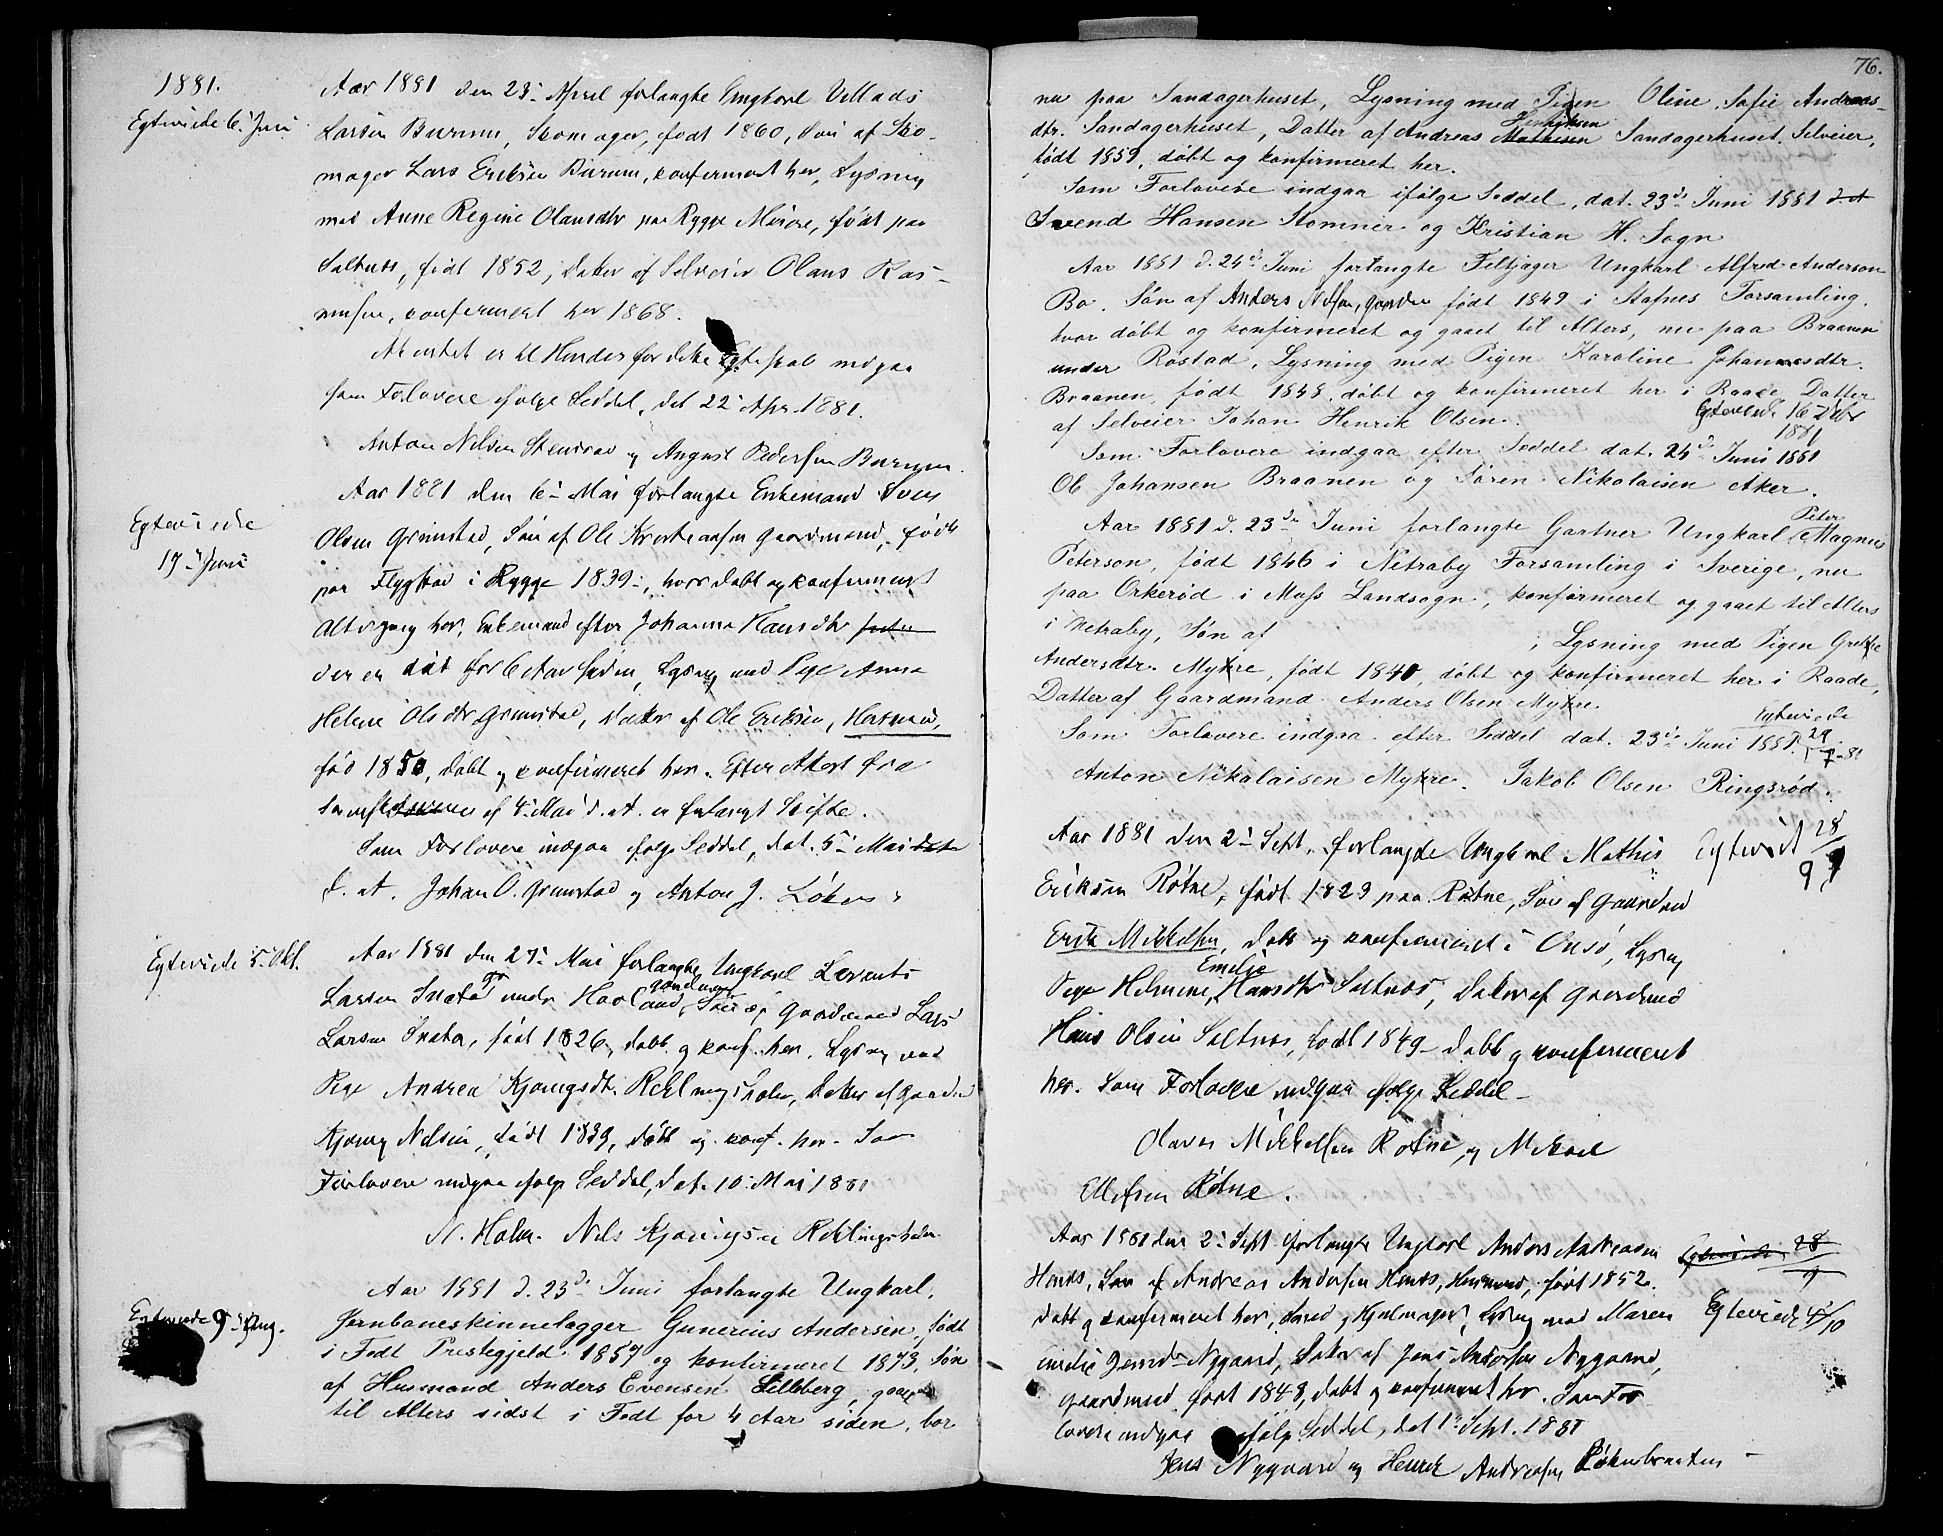 1881.
Egteviede 6. Juni
Aar 1881 den 23. April forlangte Ungkarl Villads
Larsen Burum, Skomager, født 1860, Søn af Sko-
mager Lars Eriksen Burum, konfirmeret her, Lysning
med Anne Regine Olausdtr paa Rygge Meiore, født paa
Saltnes, født 1852, Datter af Selveier Olaus Ras-
mussen, konfirmeret her 1868.
At intet er til Hinder for dette Egteskab indgaa
som Forlovere ifølge Seddel, dat 22 Apr. 1881.
Anton Nilsen Stensrød og August Pedersen Burum.
Egteviede
17 Juni
Aar 1881 den 6. Mai forlangte Enkemand Sven
Olsen Grimstad, Søn af Ole Kristiansen Gaardmand, født
paa Flyghød i Rygge 1839, hvor døbt og konfirmeret
Altergang her, Enkemand efter Johanna Hansdtr
der er død for 6 Aar siden, Lysning med Pige Anna
Helene Olsdtr Grimstad, Datter af Ole Eriksen, Husmand,
fød 1850, døbt og konfirmeret her. Efter Attest fra
af 4. Mai d. A. er forlangt Skifte.
Som Forlovere indgaa ifølge Seddel, dat. 5. Mai dato
d. A. Johan O. Grimstad og Anton J. Løken.
Egteviede 5. Okt.
Aar 1881 den 27. Mai forlangte Ungkarl Lorents
Larsen Snata under Havland, Søn af Gaardmand Lars
Larsen Snata, født 1826, døbt og konf. her. Lysning med
Pige Andrea Kjønigsdtr. Reklingsholen, Datter af Gaardm
Kjønig Nilsen, født 1839, døbt og konf. her. Som
Forlovere indgaa ifølge Seddel, dat. 10. Mai 1881
N. Holm. Nils Kjønigsen Reklingsholen
Egteviede 9. Aug.
Aar 1881 d. 23de Juni forlangte Ungkarl,
Jernbaneskinnelægger Gunerius Andersen, født
i Fedt Prestegjeld 1857 og konfirmeret 1873, Søn
af Husmand Anders Evensen Lilleberg, gaaet
til Alters sidst i Fedt for 4 Aar siden, bor
76.
nu paa Sandagerhuset, Lysning med Pigen Oline Sofie Andreas-
dtr. Sandagerhuset, Datter af Andreas Mathisen Henriksen Sandagerhuset. Selveier,
født 1859, døbt og konfirmeret her.
Som Forlovere indgaa ifølge Seddel, dat. 23de Juni 1881 d. A
Svend Hansen Komner og Kristian H. Sogn
Aar 1881 d. 24de Juni forlangte Feltjæger Ungkarl Alfred Anderson
Bo. Søn af Anders Nilsen, Gaardm født 1849 i Stafnes Forsamling,
hvor døbt og konfirmeret og gaaet til Alters, nu paa Braanen
under Røstad, Lysning med Pigen Karoline Johannesdtr.
Braanen, født 1848, døbt og konfirmeret her i Raade, Datter
af Selveier Johan Henrik Olsen.
Egteviede 16 Dcbr
1881
Som Forlovere indgaa efter Seddel dat. 24de Juni 1881
Ole Johansen Braanen og Søren Nikolaisen Aker.
Aar 1881 d. 23de Juni forlangte Gartner Ungkarl Peter Magnus
Peterson, født 1846 i Netraby Forsamling i Sverige, nu
paa Orkerød i Moss Landsogn, konfirmeret og gaaet til Alters
i Netraby, Søn af ; Lysning med Pigen Grethe
Andersdtr. Mykre, født 1840, døbt og konfirmeret her i Raade,
Datter af Gaardmand Anders Olsen Mykre.
Egteviede
29/7-81
Som Forlovere indgaa efter Seddel dat. 23de Juni 1881.
Anton Nikolaisen Mykre. Jakob Olsen Ringsrød.
Aar 1881 den 2. Sept. forlangte Ungkarl Mathis
Egteviet 28/9
Eriksen Røtne, født 1829 paa Røtne, Søn af Gaardmd
Erik Mikkelsen, døbt og konfirmeret i Onsø, Lysning
Pige Helmine Emelie Hansdtr Saltnes, Datter af Gaardmd
Hans Olsen Saltnes, født 1849 døbt og konfirmeret
her. Som Forlovere indgaa ifølge Seddel
Olaves Mikkelsen Røtne, og Mikael
Ellefsen Røtne.
Aar 1881 den 2. Sept forlangte Ungkarl Anders Andreasen
Egteviede 28/9
Henæs, Søn af Andreas Andersen Henæs, Husmand, født 1852
døbt og konfirmeret her, Smed og Hjulmager, Lysning med Maren
Egteviede 4/10
Emelie Jensdtr Nygaard, Datter af Jens Andersen Nygaard,
Gaardmand født 1848, døbt og konfirmeret her. Som For-
lovere indgaa ifølge Seddel, dat 1. Sept. 1881
Jens Nygaard og Henrik Andreasen Løkenbraaten